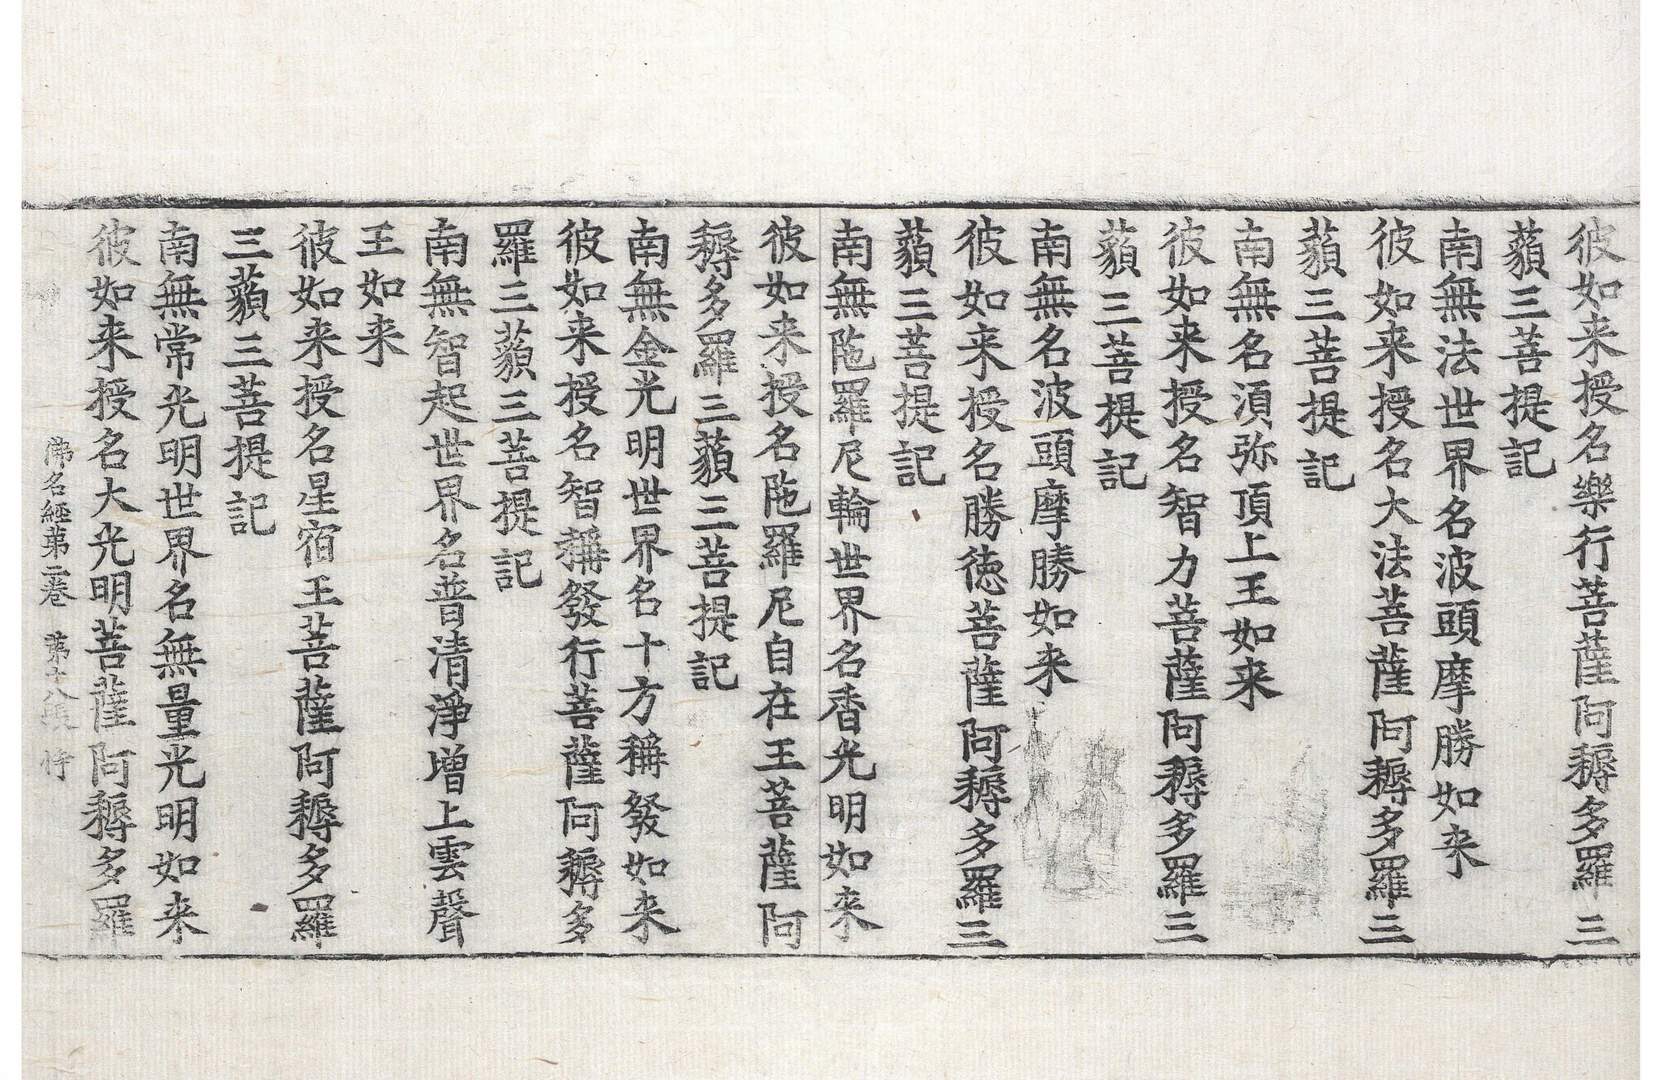 彼如来授名樂行菩薩阿耨多羅三
藐三菩提記
南無法世界名波頭摩勝如来
彼如来授名大法菩薩阿耨多羅三
藐三菩提記
南無名湏弥頂上王如来
彼如来授名智力菩薩阿耨多羅三
藐三菩提記
南無名波頭摩勝如来
彼如来授名勝徳菩薩阿耨多羅三
藐三菩提記
南無陁羅尼輪世界名香光明如来
彼如来授名陁羅尼自在王菩薩阿
耨多羅三藐三菩提記
南無金光明世界名十方稱發如来
彼如来授名智稱發行菩薩阿耨多
羅三藐三菩提記
南無智起世界名普清淨増上雲聲
王如来
彼如来授名星宿王菩薩阿耨多羅
三藐三菩提記
南無常光明世界名無量光明如来
彼如来授名大光明菩薩阿耨多羅
佛名經第二卷 第十八張